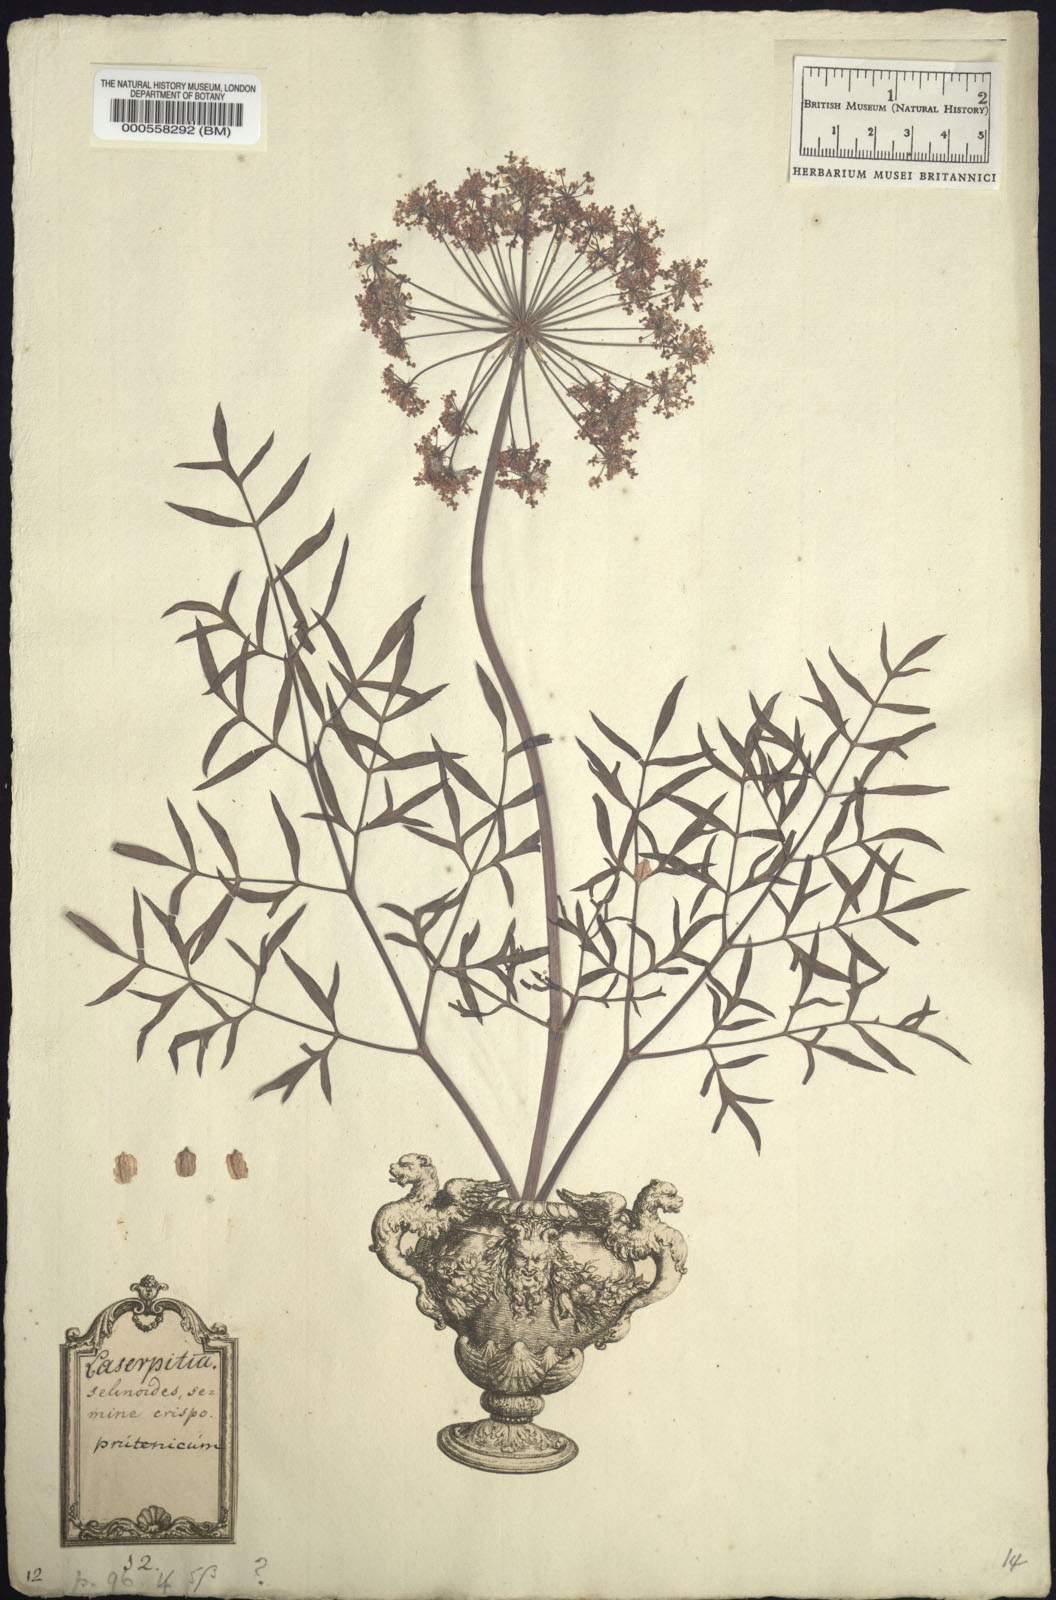 THE NATURAL HISTORY MUSEUM, LONDON
DEPARTMENT OF BOTANY
000558292 (BM)
1 2
BRITISH MUSEUM (NATURAL HISTORY)
1 2 3 4 5
HERBARIUM MUSEI BRITANNICI
Laserpitiu.
selinoides, se-
mine crispo.
prutenicum
32.
12 p. 96. 4 5β ?
14